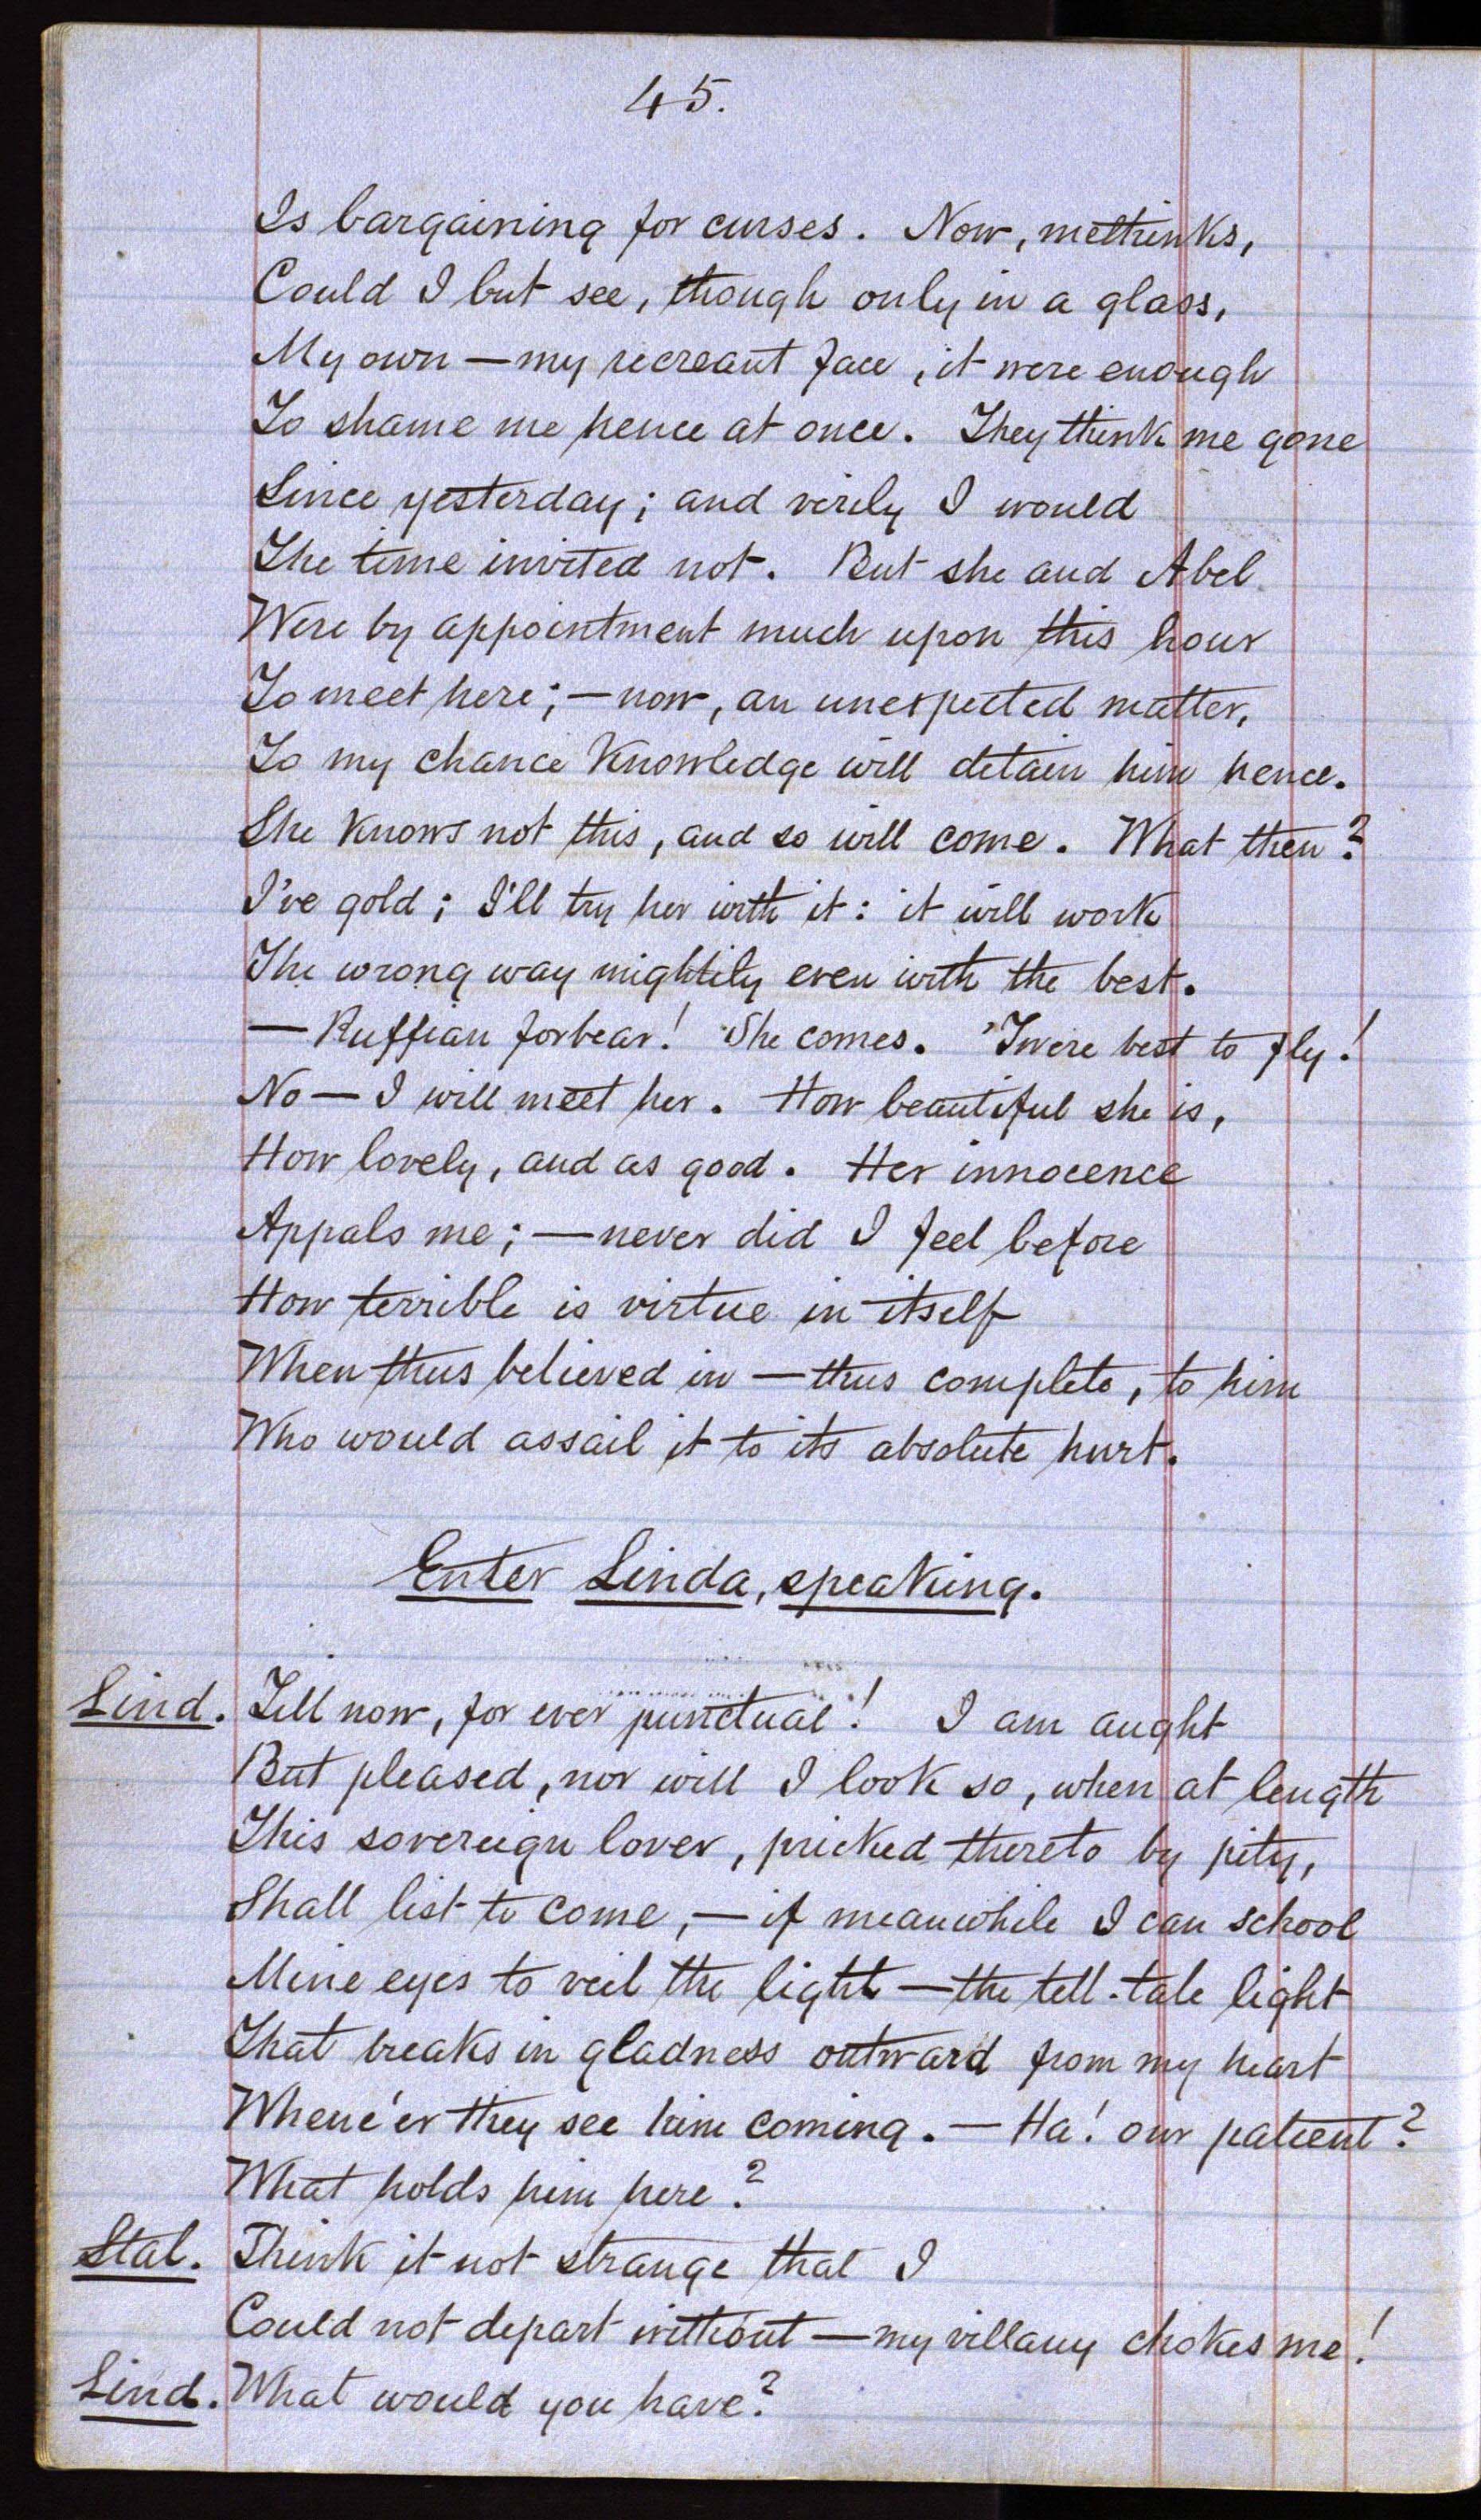 45.
Is bargaining for curses. Now, methinks,
Could I but see, though only in a glass,
My own — my recreant face, it were enough
To shame me hence at once. They think me gone
Since yesterday; and verily I would
The time invited not. But she and Abel
Were by appointment much upon this hour
To meet here; — now, an unexpected matter,
To my chance knowledge will detain him hence.
She knows not this, and so will come. What then?
I've gold; I'll try her with it: it will work
The wrong way mightily even with the best.
— Ruffian forbear! She comes. 'Twere best to fly!
No — I will meet her. How beautiful she is,
How lovely, and as good. Her innocence
Appals me; — never did I feel before
How terrible is virtue in itself
When thus believed in — thus complete, to him
Who would assail it to its absolute hurt.
Enter Linda, speaking.
Lind. Till now, for ever punctual! I am aught
But pleased, nor will I look so, when at length
This sovereign lover, pricked thereto by pity,
Shall list to come, — if meanwhile I can school
Mine eyes to veil the light — the tell-tale light
That breaks in gladness outward from my heart
Whene'er they see him coming. — Ha! our patient?
What holds him here?
Stal. Think it not strange that I
Could not depart without — my villany chokes me!
Lind. What would you have?